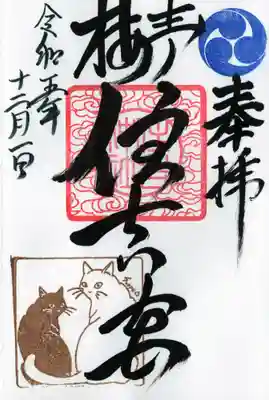 奉拝
青梅
住吉宮
令和五年
十二月一日